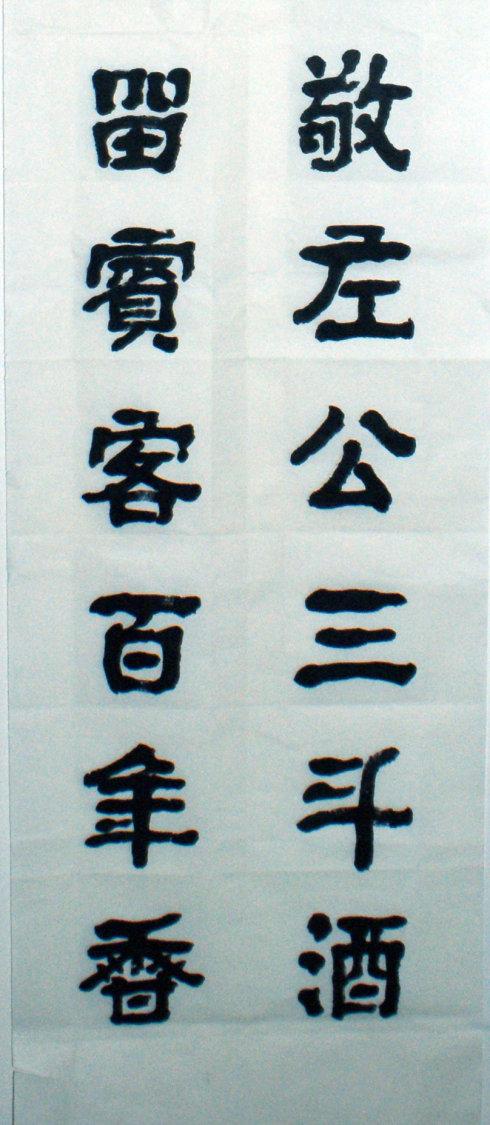 敬左公三斗酒
留賓客百年香